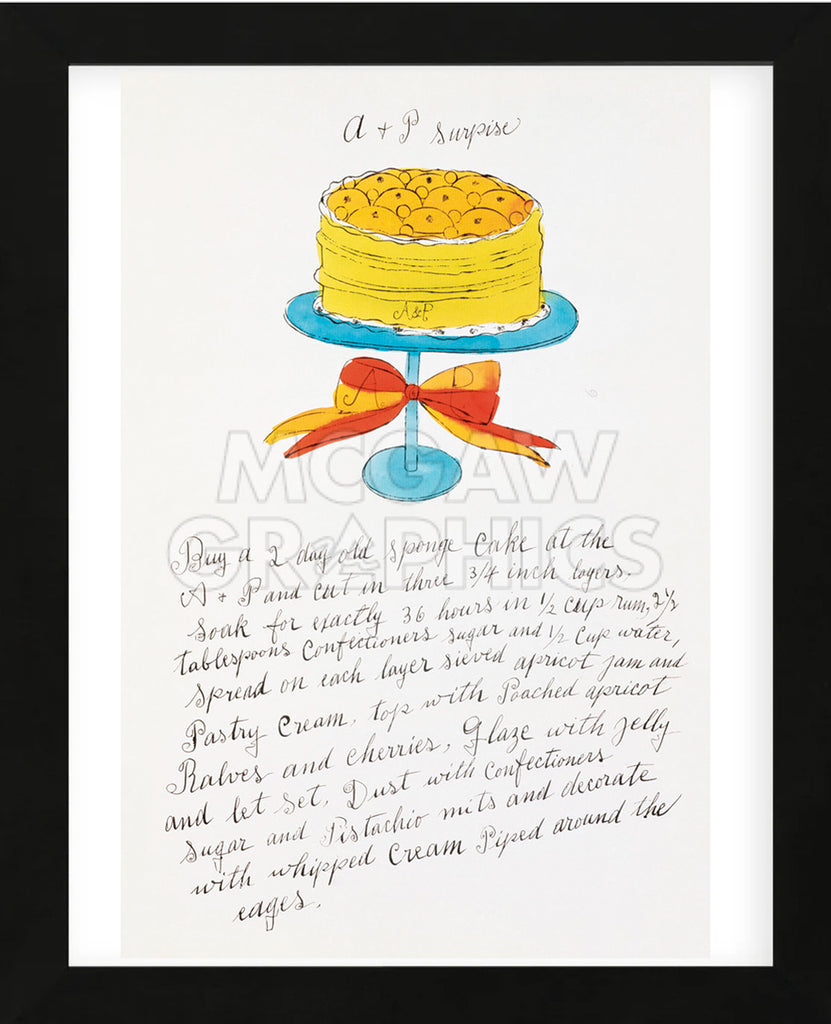 A + P surpise
A&P
A. P.
McGAW
GRAPHICS
Buy a 2 day old sponge cake at the
A + P and cut in three 3/4 inch layers.
Soak for exactly 36 hours in 1/2 cup rum, 2 1/2
tablespoons confectioners sugar and 1/2 cup water,
Spread on each layer sieved apricot jam and
Pastry Cream, top with Poached apricot
Halves and cherries, Glaze with jelly
and let set. Dust with confectioners
sugar and Pistachio nuts and decorate
with whipped Cream Piped around the
edges.